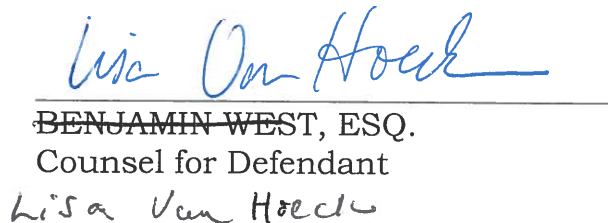 Lisa Van Hoeck
BENJAMIN WEST, ESQ.
Counsel for Defendant
Lisa Van Hoeck